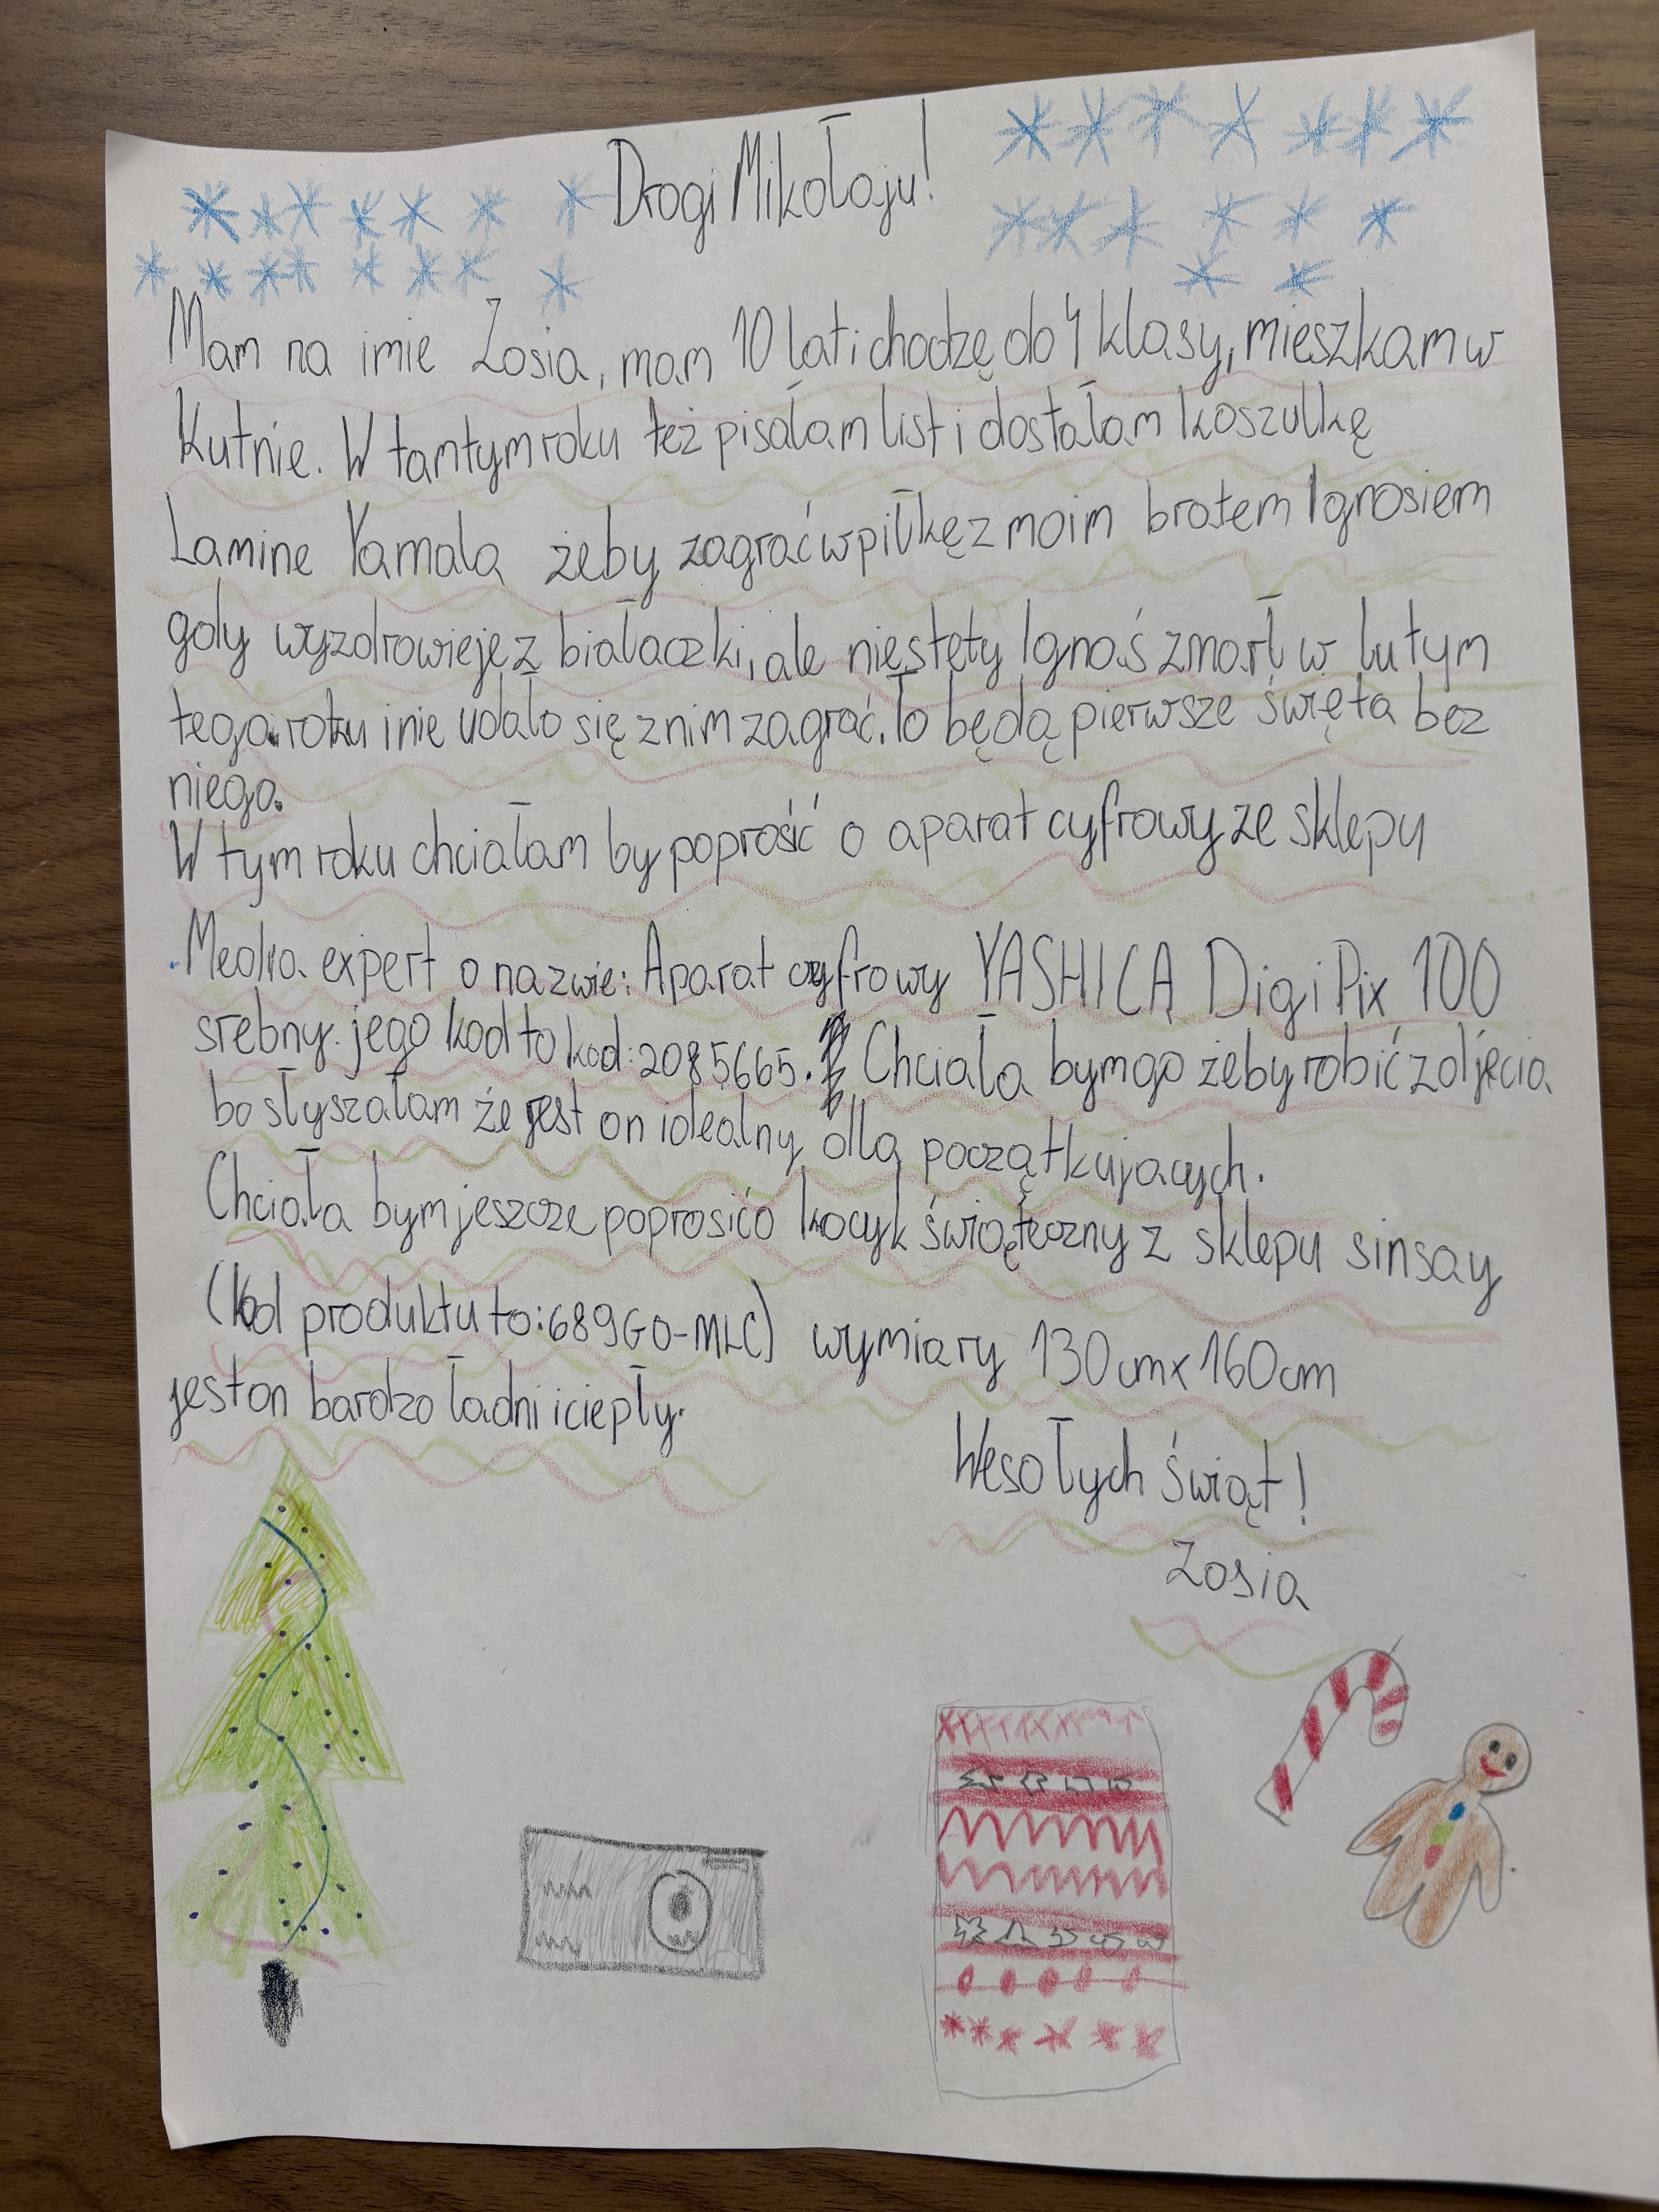 Drogi Mikołaju!
Mam na imie Zosia, mam 10 lat i chodzę do 4 klasy, mieszkam w
Kutnie. W tamtym roku też pisałam list i dostałam koszulkę
Lamine Yamala żeby zagrać w piłkę z moim bratem Ignasiem
gdy wyzdrowieje z białaczki, ale niestety Ignaś zmarł w lutym
tego roku i nie udało się z nim zagrać. To będą pierwsze święta bez
niego.
W tym roku chciałam by poprosić o aparat cyfrowy ze sklepu
Media expert o nazwie: Aparat cyfrowy YASHICA DigiPix 100
srebny. jego kod to kod: 2085665. Chciała bym go żeby robić zdjęcia
bo słyszałam że jest on idealny dla początkujacych.
Chciała bym jeszcze poprosić o kocyk świąteczny z sklepu sinsay
(kod produktu to: 689GO-MLC) wymiary 130cm x 160cm
jest on bardzo ładni i ciepły.
Wesołych świąt!
Zosia